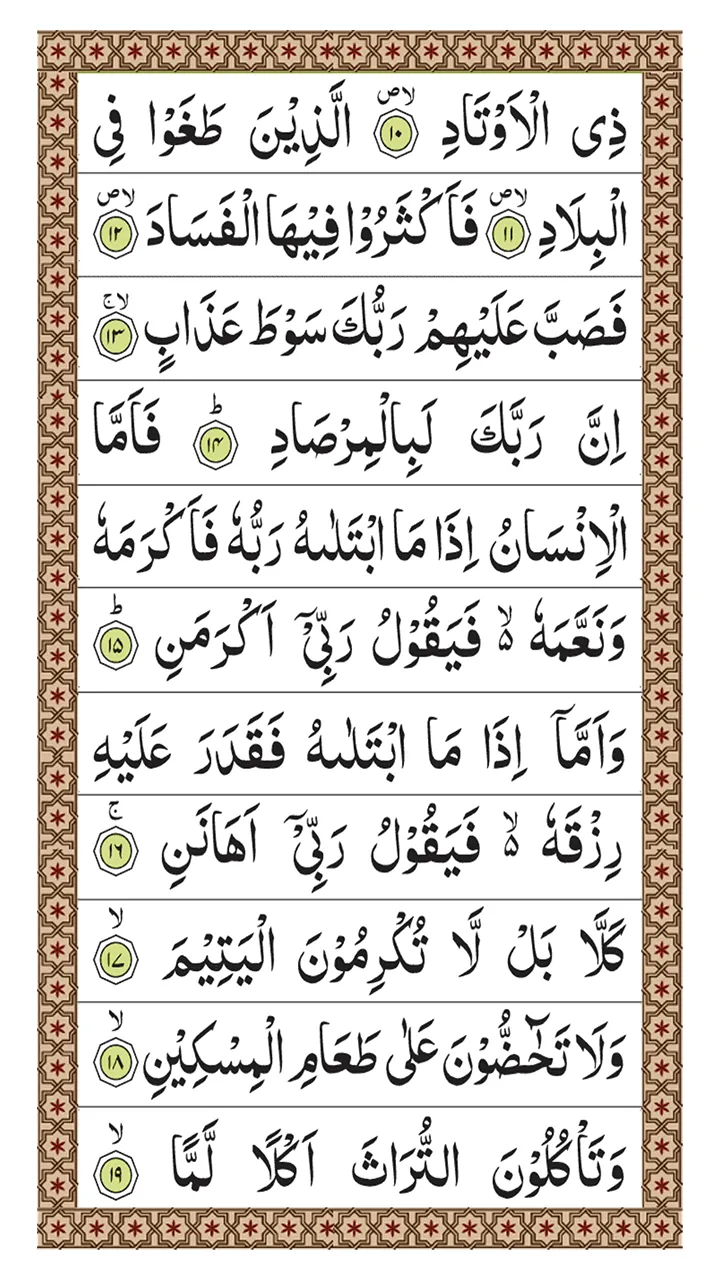 ذِى الْاَوْتَادِ ۪ۙۙ‏ ﴿۱۰﴾ الَّذِيْنَ طَغَوْا فِى
الْبِلَادِ ۪ۙۙ‏ ﴿۱۱﴾ فَاَكْثَرُوْا فِيْهَا الْفَسَادَ ۪ۙۙ‏ ﴿۱۲﴾
فَصَبَّ عَلَيْهِمْ رَبُّكَ سَوْطَ عَذَابٍ ۙۚ ﴿۱۳﴾
اِنَّ رَبَّكَ لَبِالْمِرْصَادِ ؕ ﴿۱۴﴾ فَاَمَّا
الْاِنْسَانُ اِذَا مَا ابْتَلٰىهُ رَبُّهٗ فَاَكْرَمَهٗ
وَنَعَّمَهٗ ۙ۵ فَيَقُوْلُ رَبِّىْۤ اَكْرَمَنِ ؕ ﴿۱۵﴾
وَاَمَّاۤ اِذَا مَا ابْتَلٰىهُ فَقَدَرَ عَلَيْهِ
رِزْقَهٗ ۙ۵ فَيَقُوْلُ رَبِّىْۤ اَهَانَنِ ۚ ﴿۱۶﴾
كَلَّا بَلْ لَّا تُكْرِمُوْنَ الْيَتِيْمَ ۙ ﴿۱۷﴾
وَلَا تَحٰٓضُّوْنَ عَلٰى طَعَامِ الْمِسْكِيْنِ ۙ ﴿۱۸﴾
وَتَاْكُلُوْنَ التُّرَاثَ اَكْلًا لَّمًّا ۙ ﴿۱۹﴾